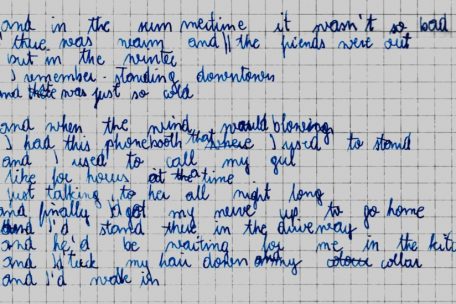 and in the summertime it wasn't so bad
thue was warm and the friends were out
but in the winter
I remember standing downtown
and there was just so cold
and when the wind would blowing
I had this phonebooth that where I used to stand
and I used to call my gul
like for hours at the time
Just talking to her all night long
and finally I'd get my nerve up to go home
and I'd stand thue in the driveway
and he'd be waiting for me in the kitc
and I'd tuck my hair down my collar
and I'd walk in